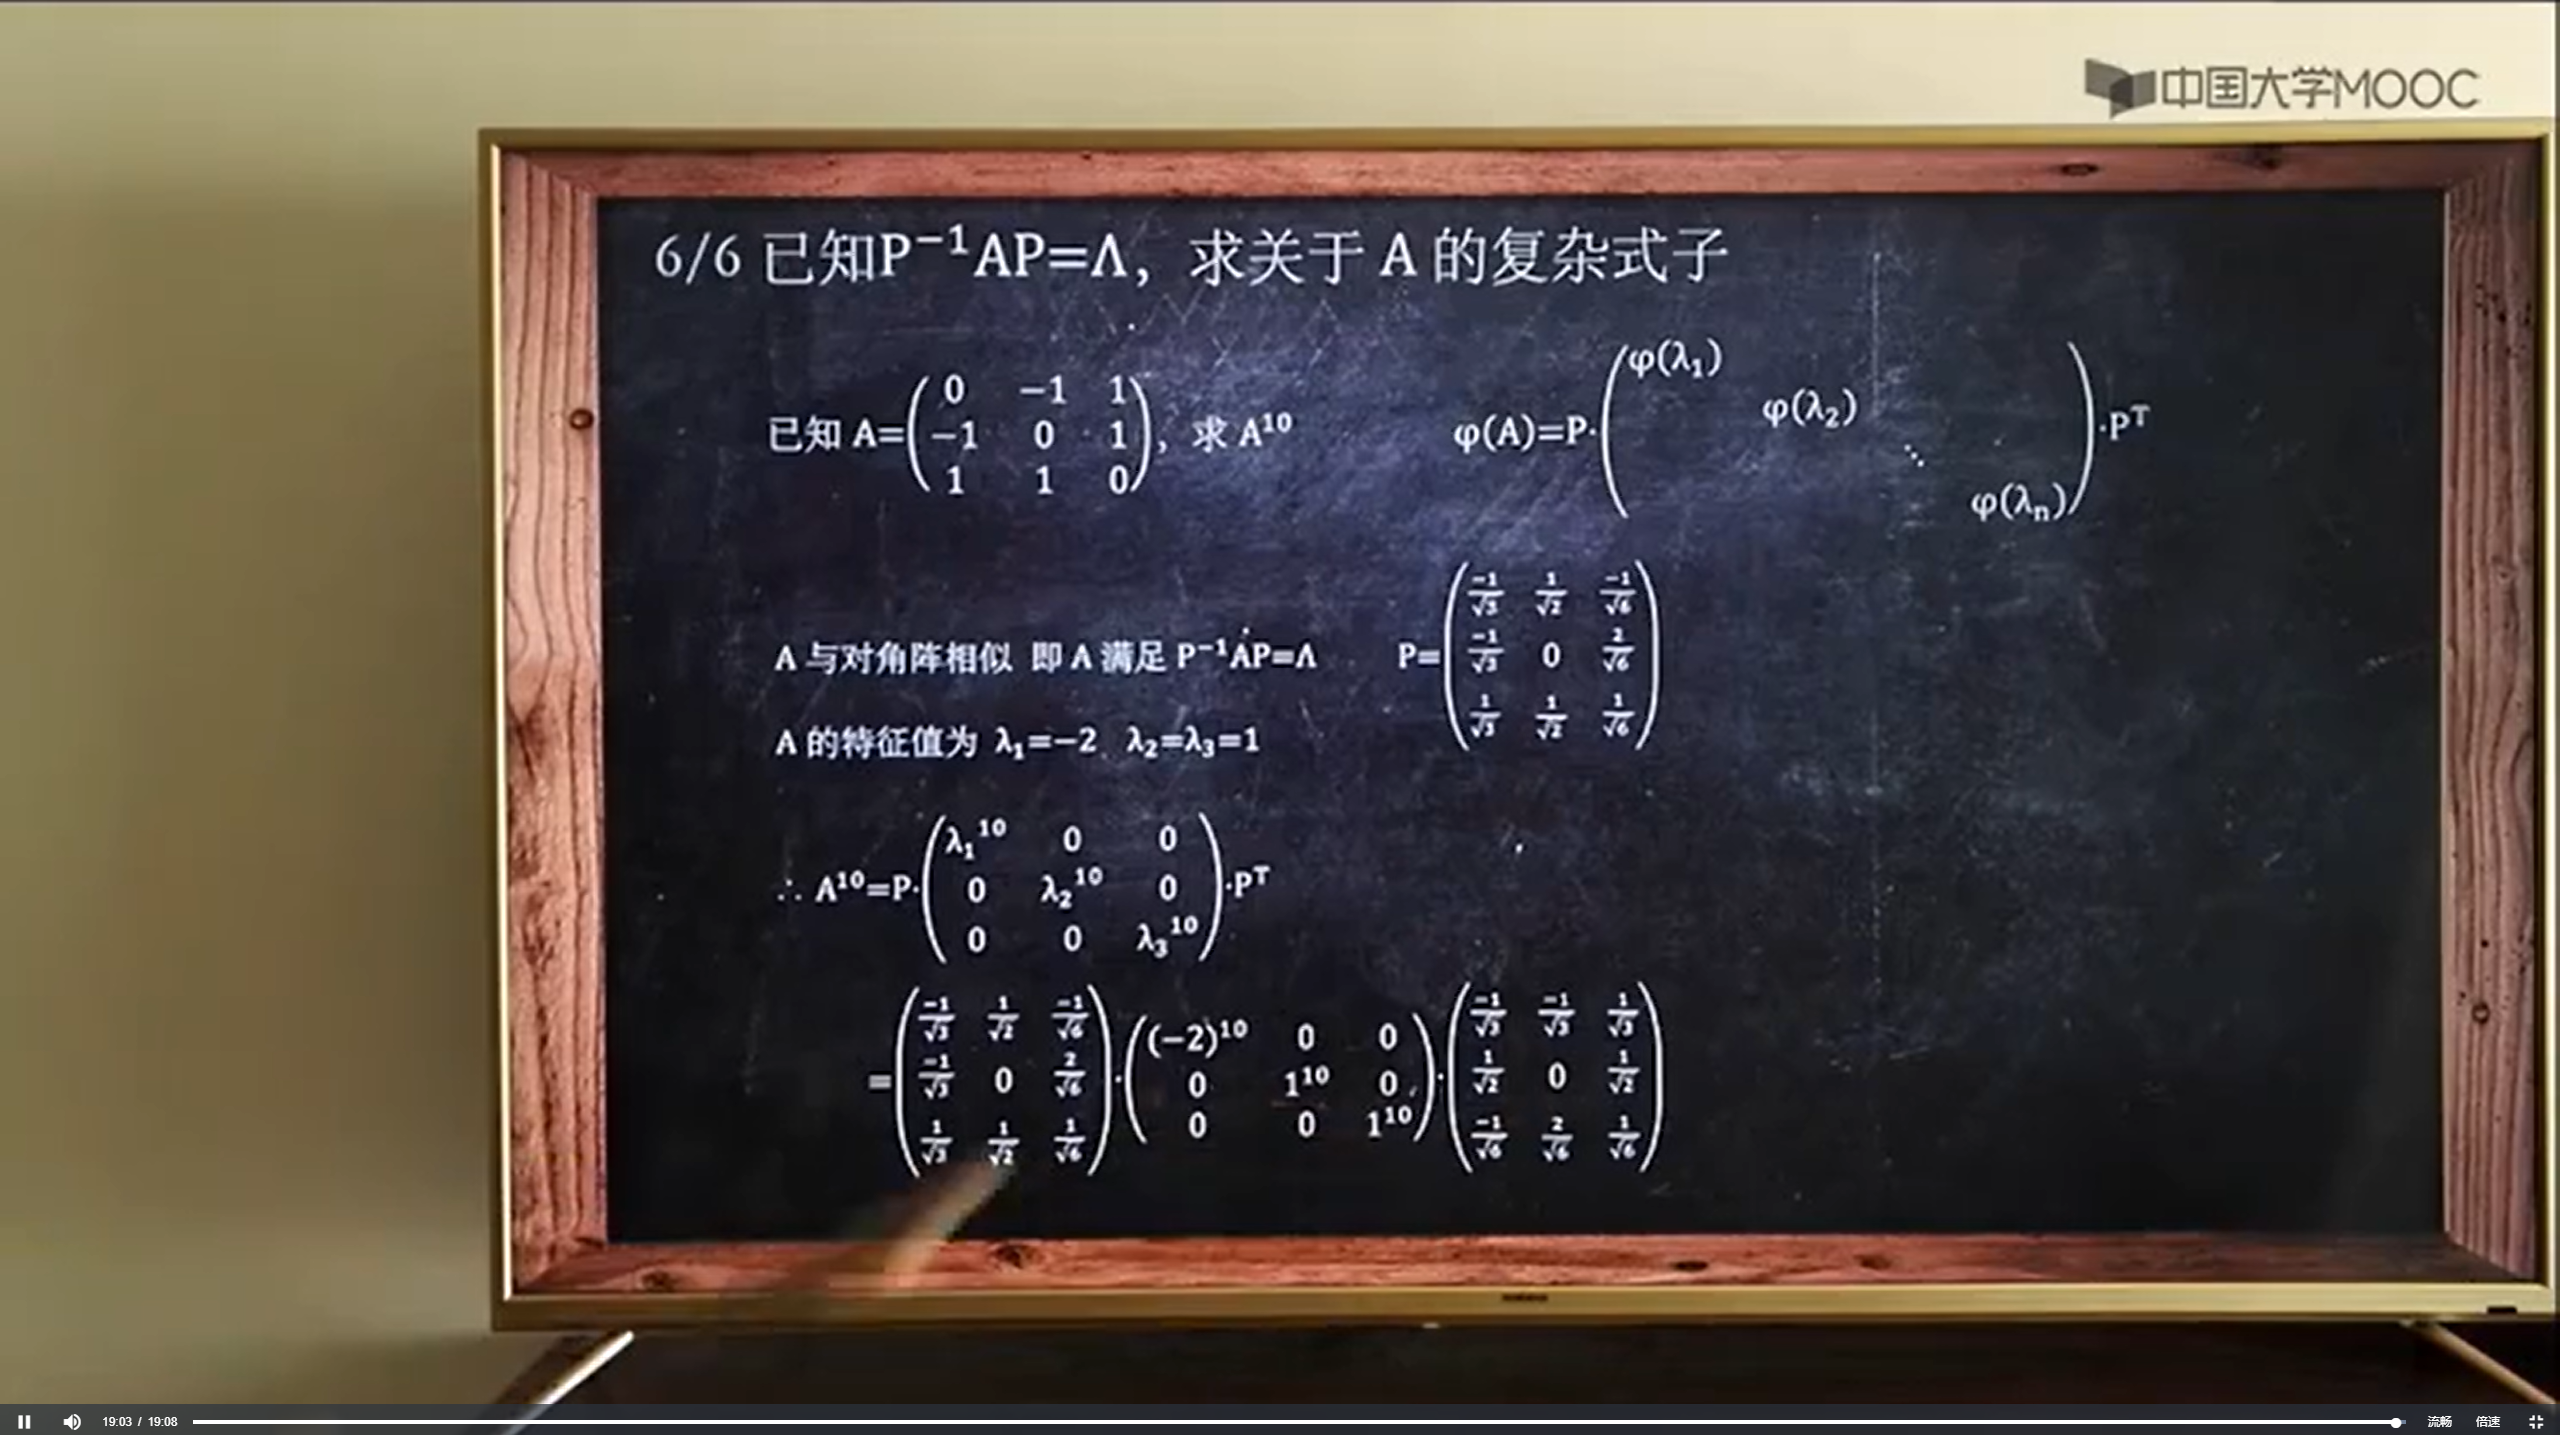 中国大学MOOC
6/6 已知P⁻¹AP=Λ，求关于 A 的复杂式子
已知 A=(0 −1 1; −1 0 1; 1 1 0)，求 A¹⁰
φ(A)=P·(φ(λ₁) φ(λ₂) ⋱ φ(λₙ))·Pᵀ
A 与对角阵相似 即 A 满足 P⁻¹AP=Λ
P=(−1/√3 1/√2 −1/√6; −1/√3 0 2/√6; 1/√3 1/√2 1/√6)
A 的特征值为 λ₁=−2 λ₂=λ₃=1
∴ A¹⁰=P·(λ₁¹⁰ 0 0; 0 λ₂¹⁰ 0; 0 0 λ₃¹⁰)·Pᵀ
=(−1/√3 1/√2 −1/√6; −1/√3 0 2/√6; 1/√3 1/√2 1/√6)·((−2)¹⁰ 0 0; 0 1¹⁰ 0; 0 0 1¹⁰)·(−1/√3 −1/√3 1/√3; 1/√2 0 1/√2; −1/√6 2/√6 1/√6)
19:03 / 19:08
流畅 倍速